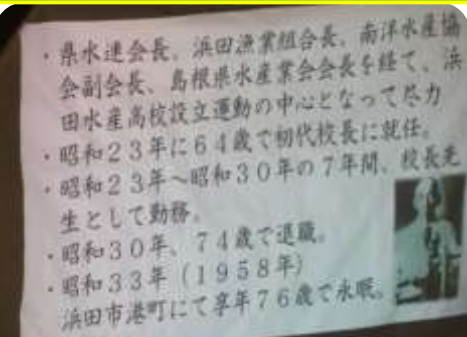 ・県水連会長。浜田漁業組合長、南洋水産協
会副会長、島根県水産業会会長を経て、浜
田水産高校設立運動の中心となって尽力
・昭和23年に64歳で初代校長に就任。
・昭和23年～昭和30年の7年間、校長先
生として勤務。
・昭和30年、74歳で退職。
・昭和33年(1958年)
浜田市港町にて享年76歳で永眠。